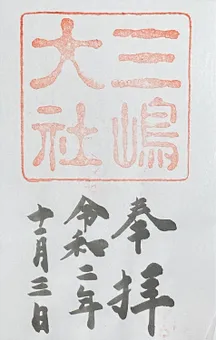 三嶋
大社
奉拝
令和二年
十二月三日